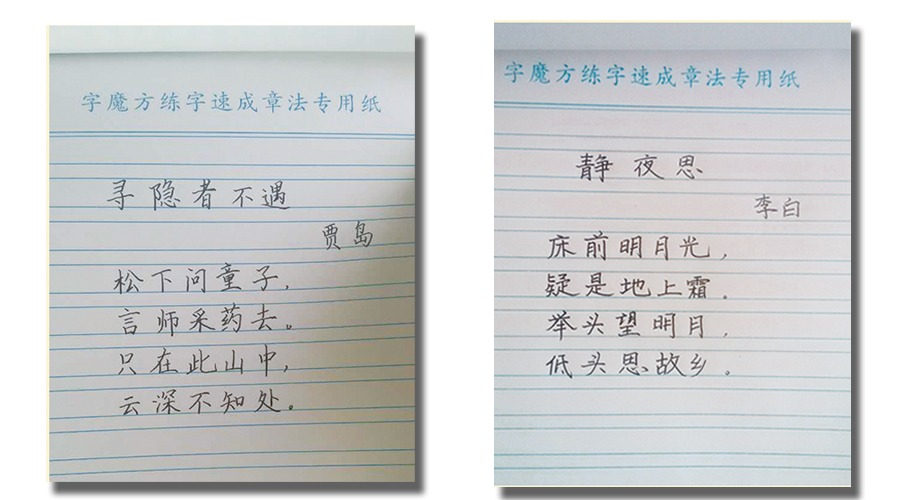 字魔方练字速成章法专用纸
寻隐者不遇
贾岛
松下问童子,
言师采药去。
只在此山中,
云深不知处。
字魔方练字速成章法专用纸
静夜思
李白
床前明月光,
疑是地上霜。
举头望明月,
低头思故乡。